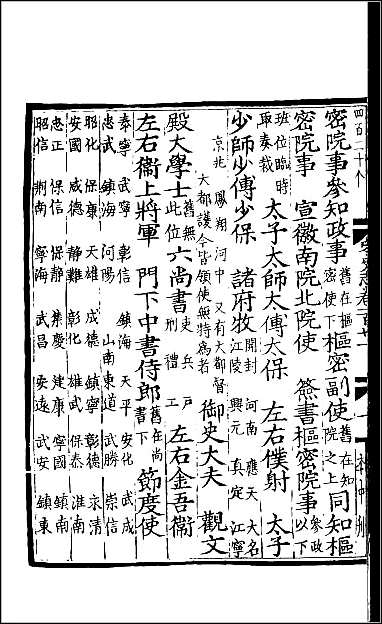 四百二十八
密院事參知政事舊在樞密使下樞密副使舊在知院之上同知樞
密院事 宣徽南院北院使 簽書樞密院事參政以下
班位臨時取奏裁 太子太師太傅太保 左右僕射 太子
少師少傅少保 諸府牧開封 河南 應天 大名 江陵 興元 真定 江寧
京兆 鳳翔 河中 又有大都督大都護今皆領使無特爲者 御史大夫 觀文
殿大學士舊無此位 六尚書吏 兵 戶 刑 禮 工 左右金吾衞
左右衞上將軍 門下中書侍郎舊在尚書下 節度使
泰寧 武寧 彰信 鎮海 天平 安化 武成
忠武 鎮海 河陽 山南東道 武勝 崇信
昭化 保康 天雄 成德 鎮寧 彰德 永清
安國 威德 靜難 彰化 雄武 保泰 淮南
忠正 保信 保靜 集慶 建康 寧國 鎮南
昭信 荊南 寧海 武昌 安遠 武安 鎮東